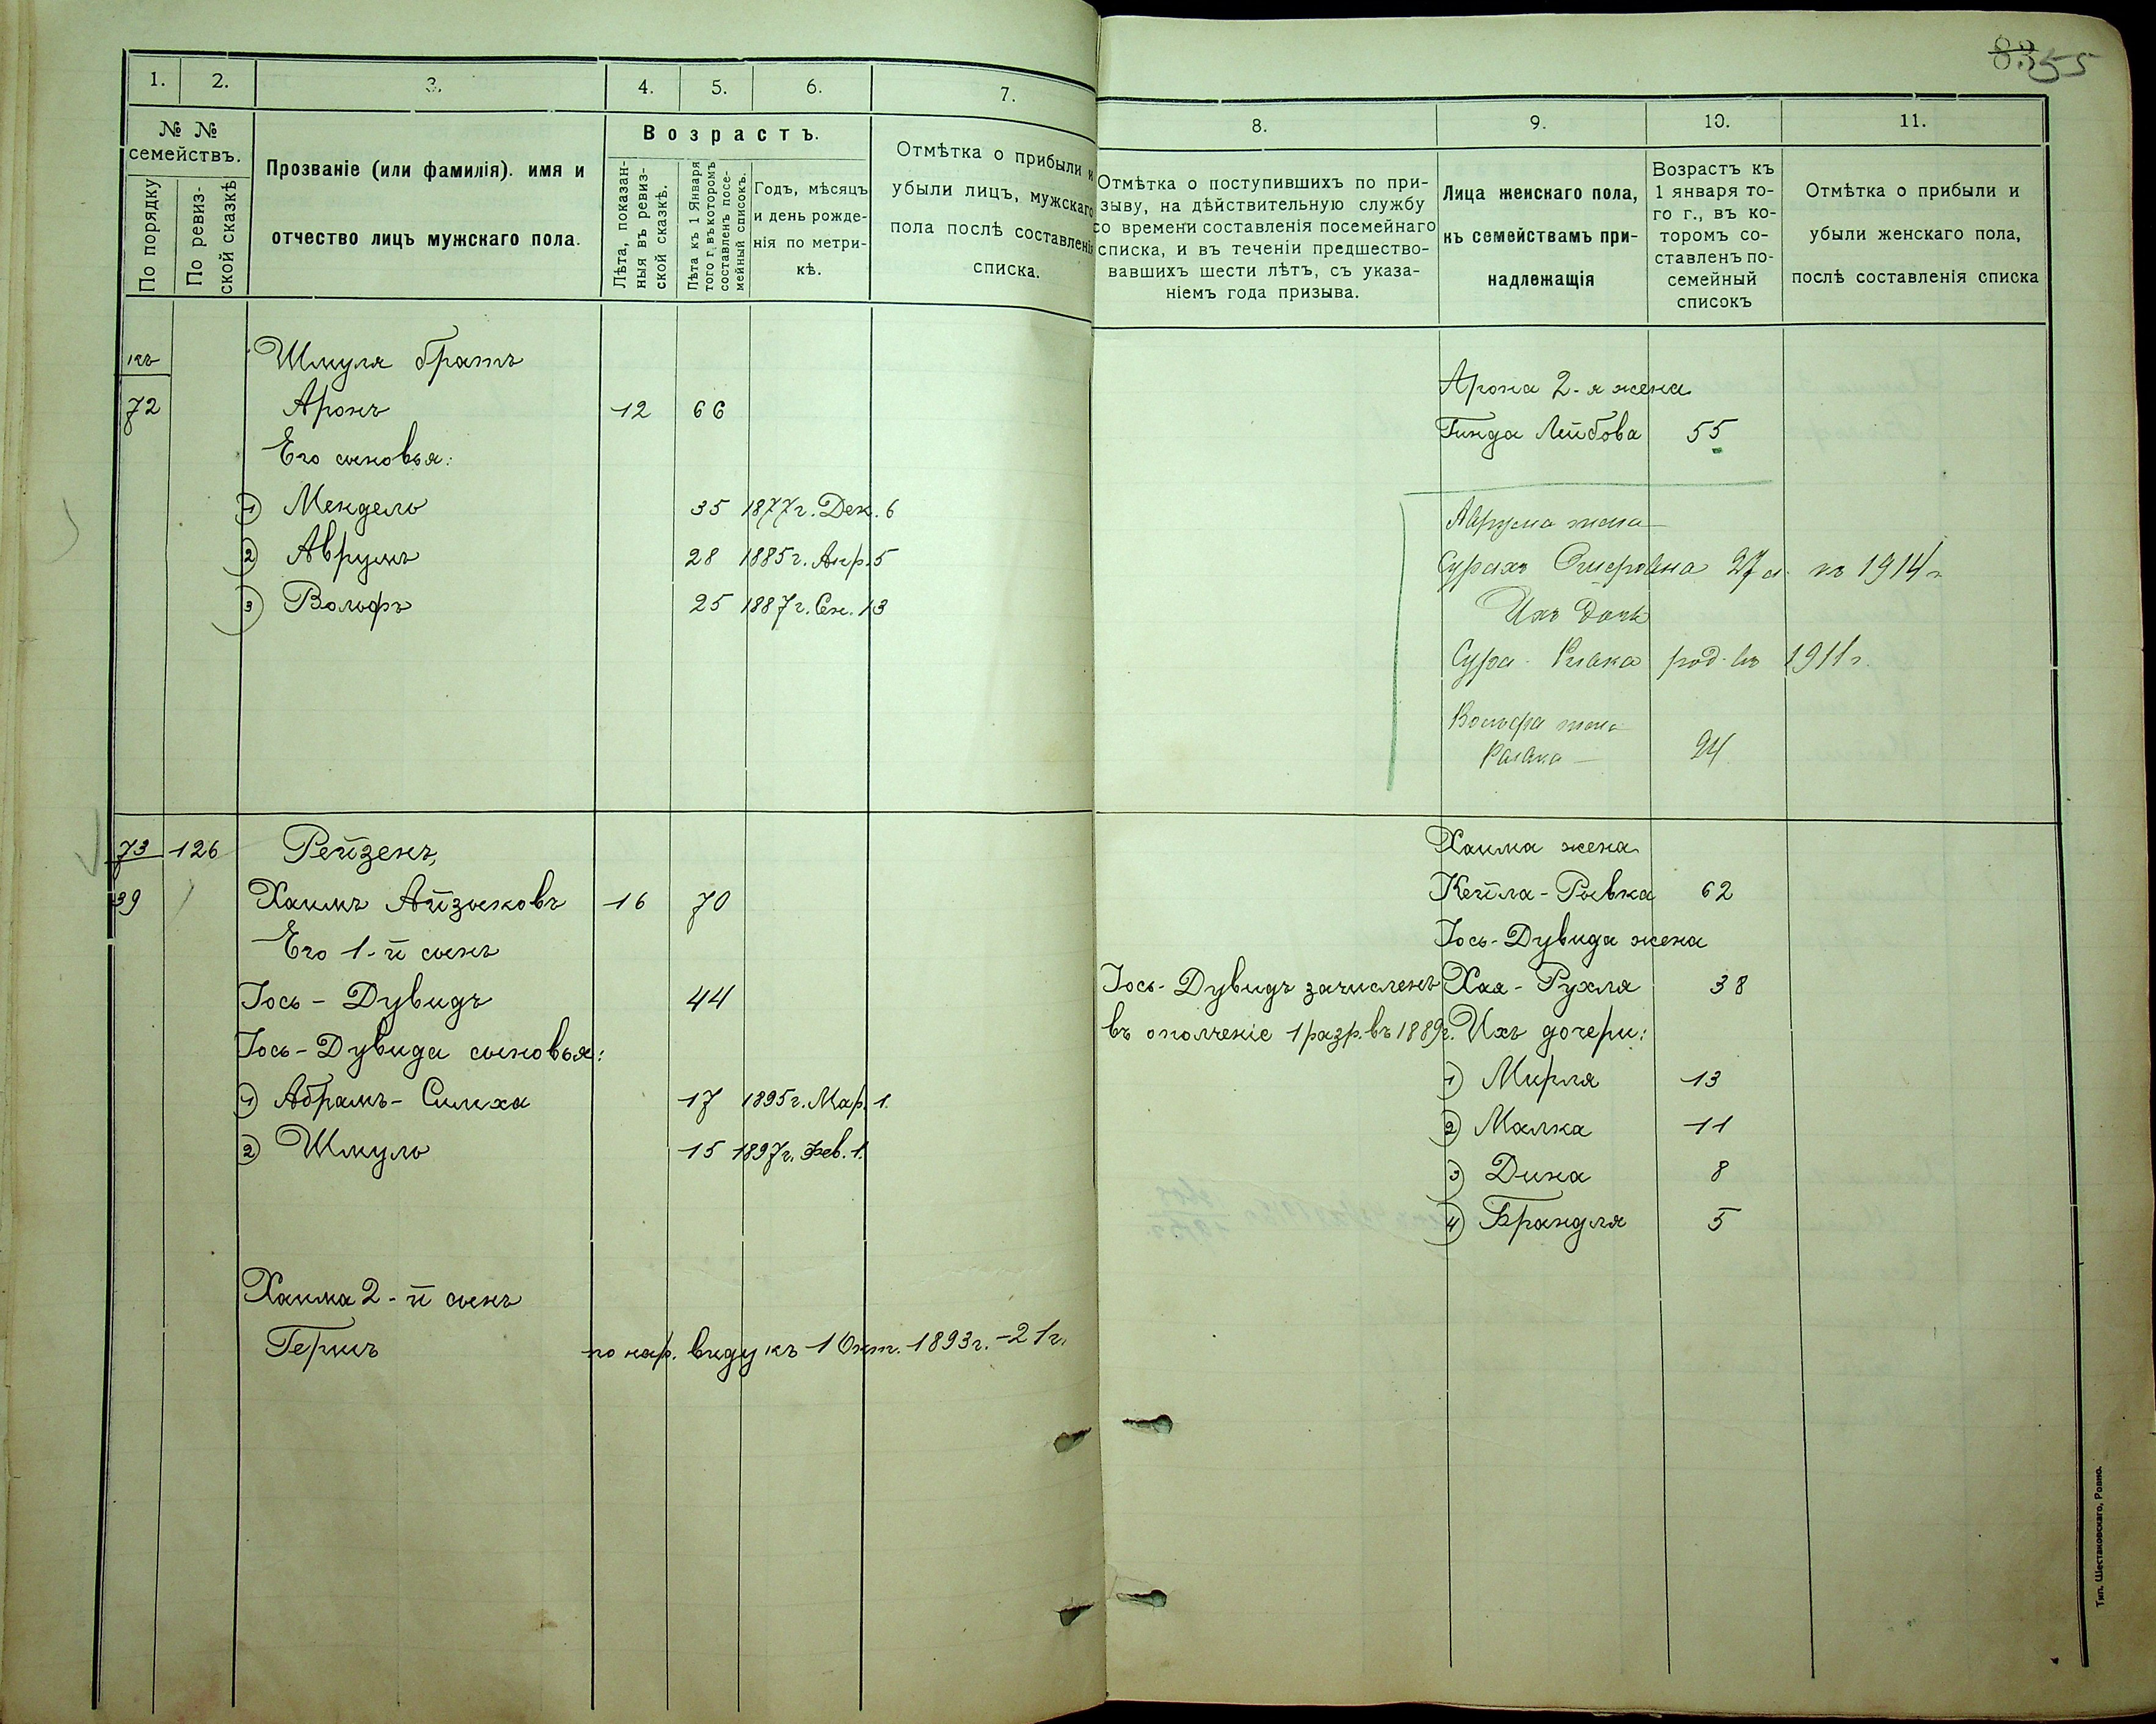 8355
1. 2. 3. 4. 5. 6. 7.
№ № семействъ.
По порядку
По ревиз-
ской сказкѣ
Прозваніе (или фамилія). имя и
отчество лицъ мужскаго пола.
Возрастъ.
Лѣта, показан-
ныя въ ревиз-
ской сказкѣ.
Лѣта къ 1 Января
того г. въ которомъ
составленъ посе-
мейный списокъ.
Годъ, мѣсяцъ
и день рожде-
нія по метри-
кѣ.
Отмѣтка о прибыли и
убыли лицъ, мужскаго
пола послѣ составленія
списка.
къ Шмуля братъ
72 Аронъ 12 66
Его сыновья:
1) Мендель 35 1877г. Дек. 6
2) Аврумъ 28 1885г. Апр. 5
3) Вольфъ 25 1887г. Сен. 13
73 126 Рейзенъ,
39 Хаимъ Айзиковъ 16 70
Его 1-й сынъ
Іось-Дувидъ 44
Іось-Дувида сыновья:
1) Абрамъ-Симха 17 1895г. Мар. 1.
2) Шмуль 15 1897г. Фев. 1.
Хаима 2-й сынъ
Гершъ по нар. виду къ 1 Окт. 1893г. -21г.
8. 9. 10. 11.
Отмѣтка о поступившихъ по при-
зыву, на дѣйствительную службу
со времени составленія посемейнаго
списка, и въ теченіи предшество-
вавшихъ шести лѣтъ, съ указа-
ніемъ года призыва.
Лица женскаго пола,
къ семействамъ при-
надлежащія
Возрастъ къ
1 января то-
го г., въ ко-
торомъ со-
ставленъ по-
семейный
списокъ
Отмѣтка о прибыли и
убыли женскаго пола,
послѣ составленія списка
Арона 2-я жена
Гинда Лейбова 55
Аврума жена
Сурахъ 27 л. къ 1914г
Ихъ дочь
Сура-Ривка род. въ 1911г.
Вольфа жена
24
Хаима жена
Кейла-Рывка 62
Іось-Дувида жена
Іось-Дувидъ зачисленъ Хая-Рухля 38
въ ополченіе 1 разр. въ 1889г. Ихъ дочери:
1) Мирля 13
2) Малка 11
3) Дина 8
4) Брандля 5
Тип. Шестаковскаго, Ровно.